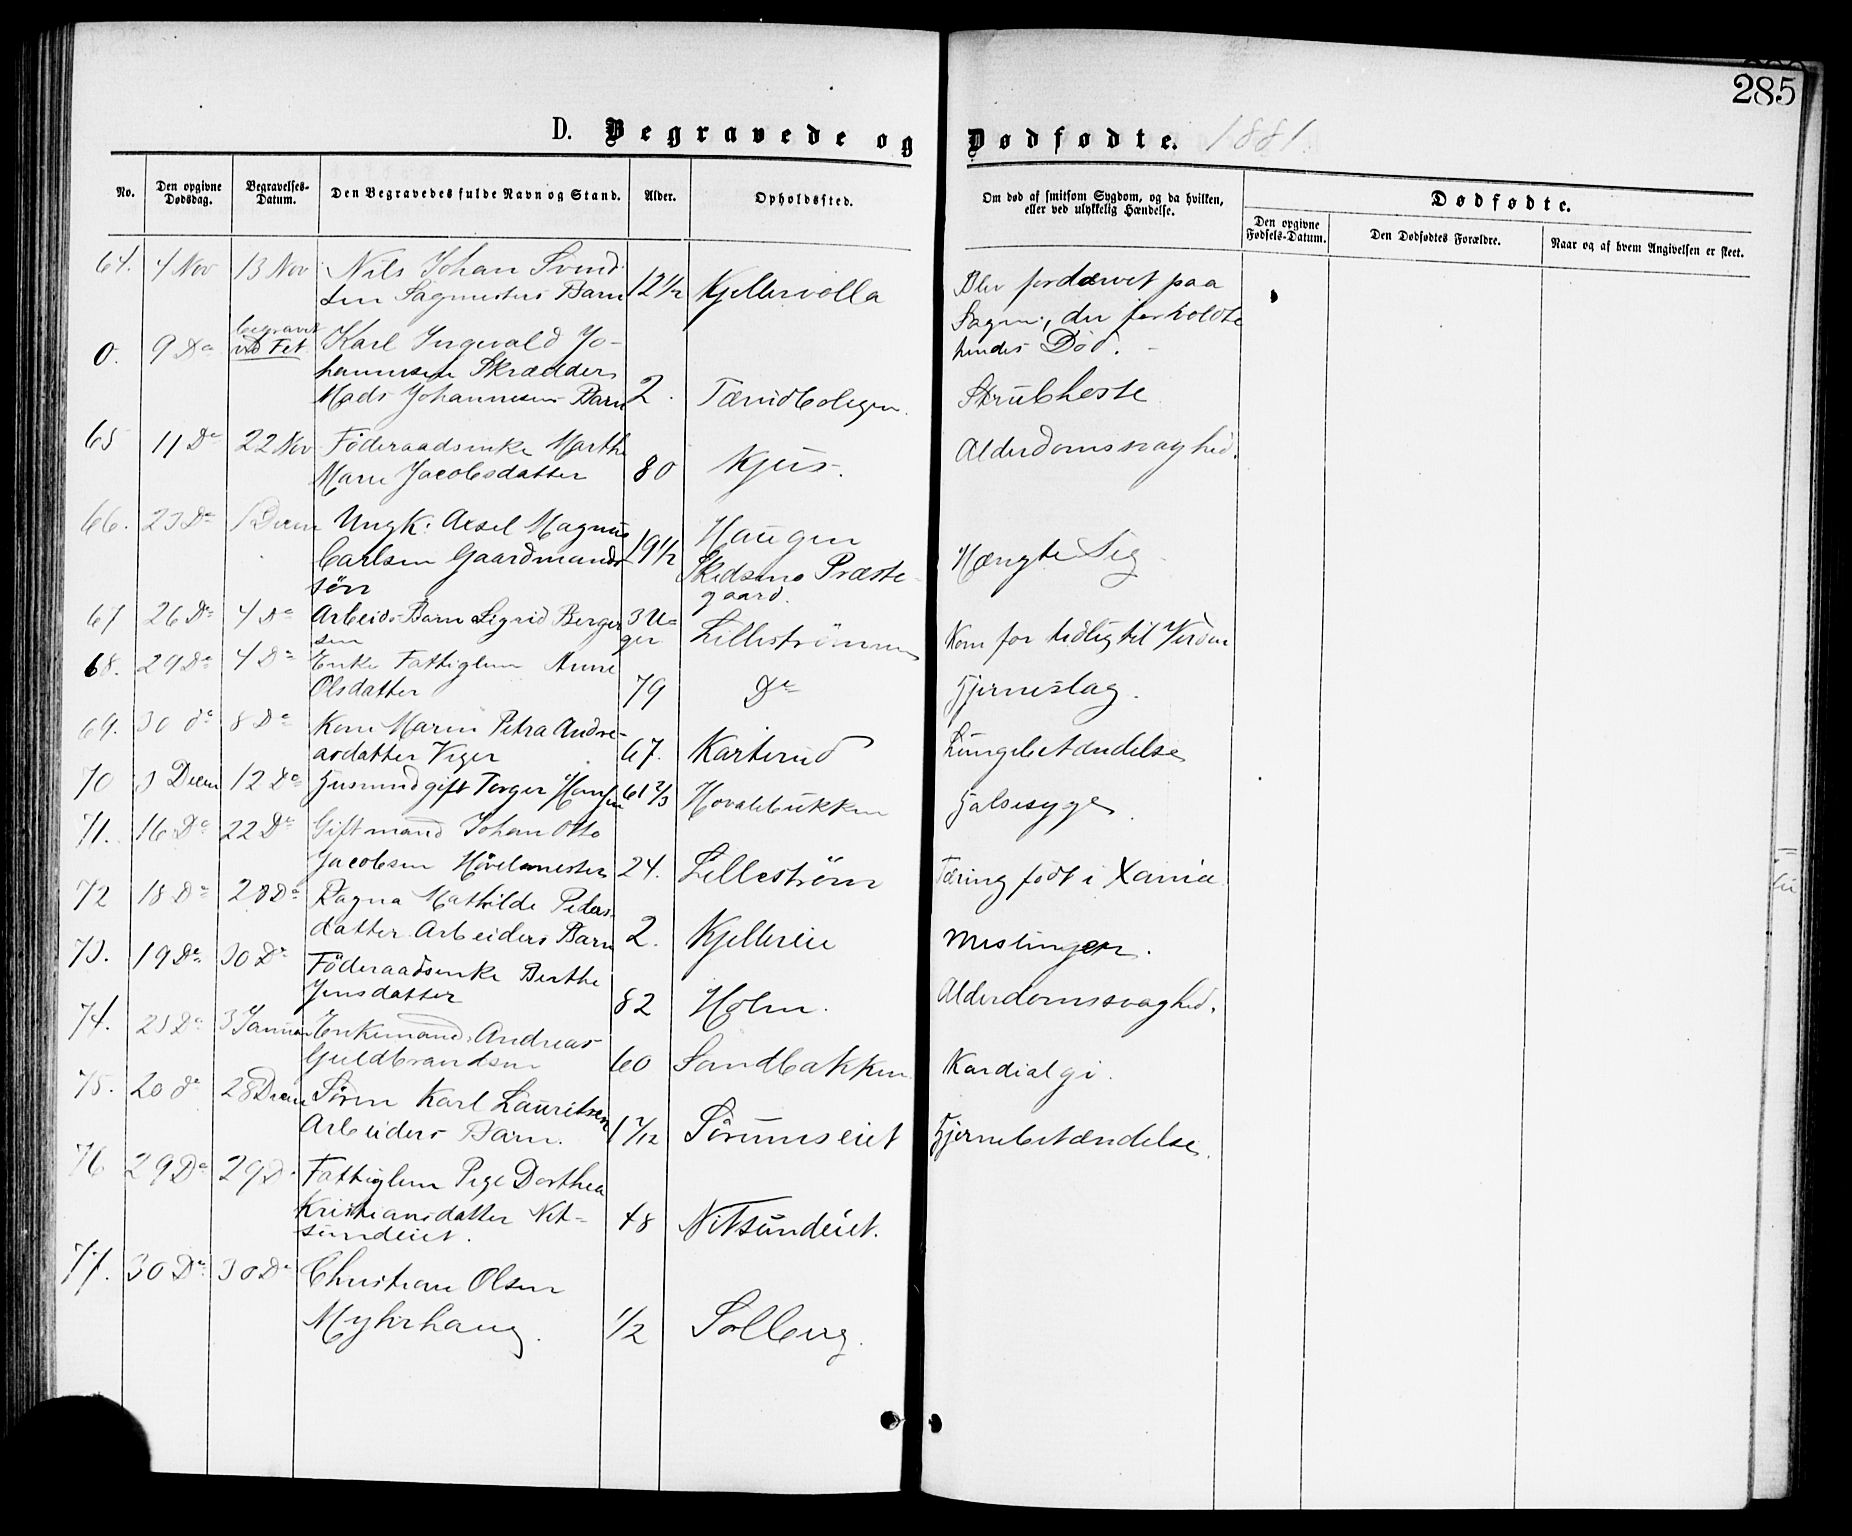 285
D. Begravede og Dødfødte. 1881.
No.
Den opgivne Dødsdag.
Begravelses-Datum.
Den Begravedes fulde Navn og Stand.
Alder.
Opholdssted.
Om død af smitsom Sygdom, og da hvilken, eller ved ulykkelig Hændelse.
Dødfødte.
Den opgivne Fødsels-Datum.
Den Dødfødtes Forældre.
Naar og af hvem Angivelsen er skeet.
64. 4 Nov 13 Nov Nils Johan Svend-
sen Sagmesters Barn 12 1/2 Kjellervolla Blev fordærvet paa
Sagen, der forholdte
hendes Død.
0. 9 Do begravet ved Fet Karl Ingevald Jo-
hannesen Skrædder
Mads Johannesens Barn 2. Strubhoste
65 11 Do 22 Nov Føderaadsenke Marthe
Marie Jacobsdatter 80 Kjus. Alderdomssvaghed.
66. 23 Do 1 Decem Ungk. Axel Magnus
Carlsen Gaardmands
søn 19 1/2 Haugen
Skedsmo Præste-
gaard. Hængte Sig
67 26 Do 4 Do Arbeids-Barn Sigrid Berger
sen 3 U=
ger Lillestrømmen Kom for tidlig til Verden
68. 29 Do 4 Do Enke Fattiglem Anne
Olsdatter 79 Do Hjerneslag.
69. 30 do 8 Do Kone Maren Petra Andre-
asdatter Viger 67. Karterud Lungebetændelse
70 3 Decem 12 Do Husmand gift Torger Hansen 61 2/3 Halsesyge
71. 16 Do 22 Do Gift mand Johan Otto
Jacobsen Høvelmester 24. Lillestrøm Tæring født i Xania
72 18 Do 28 Do Ragna Mathilde Peders-
datter Arbeiders Barn 2. Kjellereie Meslinger.
73. 19 Do 30 Do Føderaadsenke Berthe
Jensdatter 82 Holm. Alderdomssvaghed.
74. 23 Do 3 Januar Enkemand Andreas
Guldbrandsen 60 Sandbakken Kardialgi.
75. 20 do 28 Decem Søren Karl Lauritsen
Arbeiders Barn. 1 7/12 Sørumseiet Hjernebetændelse.
76 29 Do 29 D. Fattiglem Pige Dorthea
Kristiansdatter Nit-
sundeiet. 48 Nitsundeiet.
77. 30 Do 30 Do Christian Olsen
Myhrhaug. 1/2 Solberg.